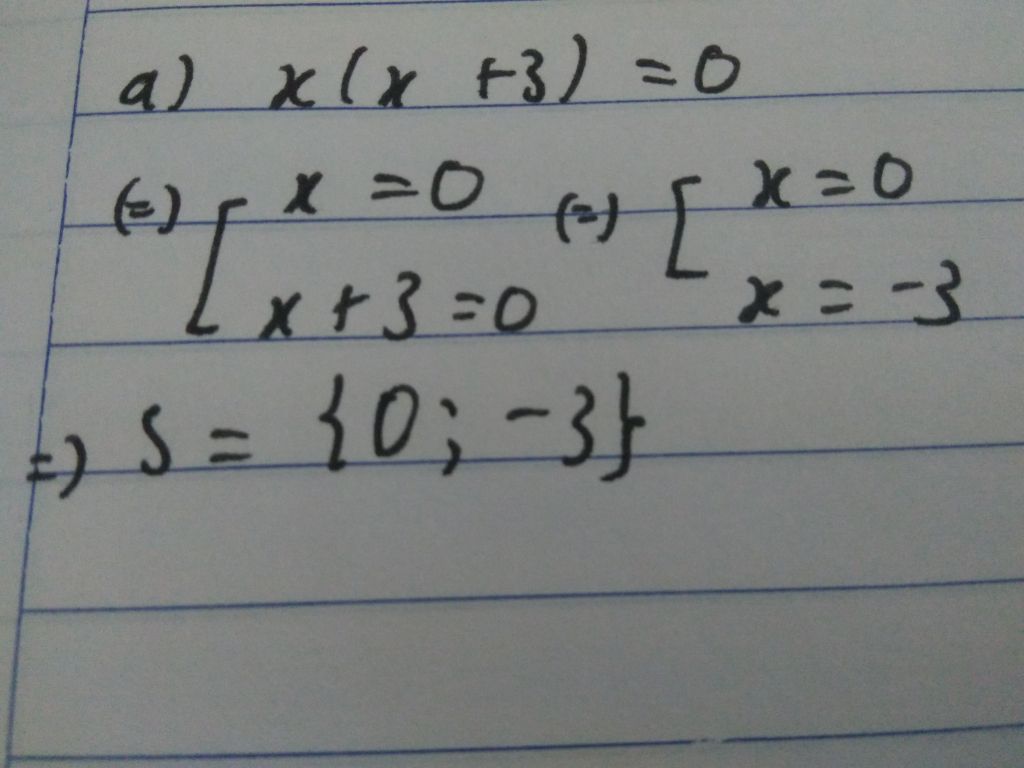 a) x(x +3) = 0
(=) [ x = 0 (=) [ x = 0
x + 3 = 0 x = -3
=) S = {0; -3}